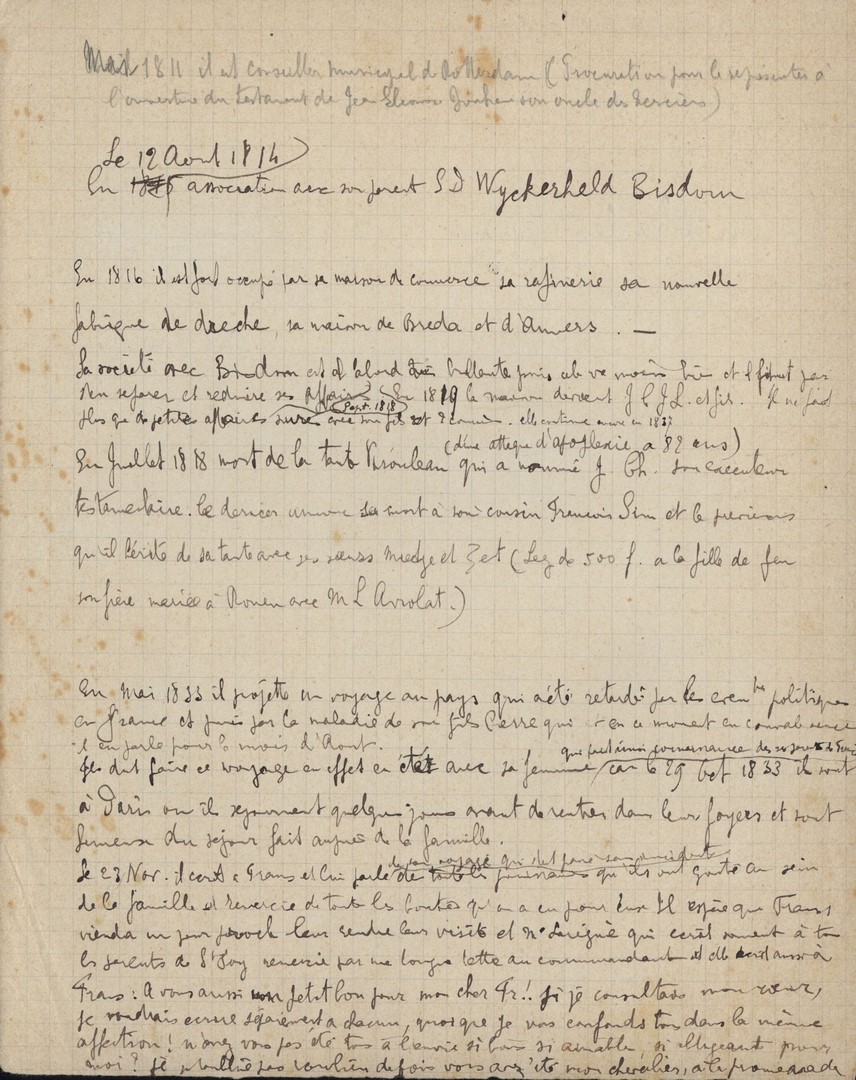 Mai 1811 il est conseiller municipal de Rotterdam (Procuration pour le représenter à
l'ouverture du testament de Jean son oncle des
Le 12 Aout 1814
En 1815 association avec son parent S D Wyckerheld Bisdom
En 1816 il est fort occupé par sa maison de commerce sa rafinerie sa nouvelle
fabrique de dreche, sa maison de Breda et d'Anvers . —
Sa société avec Bisdom est d'abord brillante puis elle va moins bien et il finit par
s'en separer et reduire ses affaires En 1819 la maison devient J C J L. et fils. Il ne fait
plus que de petites affaires avec son fils et 2 commis. elle continue encore en 1837
Sept. 1818
(d'une attaque d'apoplexie a 82 ans)
En Juillet 1818 mort de la tante qui a nommé J. Ch. son executeur
testamentaire. Ce dernier annonce sa mort à son cousin François et le previens
qu'il hérite de sa tante avec ses sœurs et Zet (Leg de 500 f. a la fille de feu
son frère mariée à Rouen avec M L Avrolat.)
En Mai 1833 il projette un voyage au pays qui a été retardé par les even^ts politiques
en France et puis par la maladie de son fils Pierre qui est en ce moment en convalescence
il en parle pour le mois d'Aout.
que fait ainsi connaissance de
Ils dut faire ce voyage en effet en été avec sa femme car le 29 Oct 1833 ils sont
à Paris ou ils sejournent quelques jours avant de rentrer dans leur foyers et sont
heureux du séjour fait aupres de la famille.
de son voyage qui s'est passé sans accident
Le 23 Nov. il ecrit a Frans et lui parle de toutes les jouissances qu'ils ont gouté au sein
de la famille et remercie de toutes les bontés qu'on a eu pour eux Il espère que Frans
viendra un jour leur rendre leur visite et M^e qui ecrit souvent à tous
les parents de S^t Foy remercie par une longue lettre au commandant et elle ecrit aussi à
Frans : A vous aussi un petit bon pour mon cher Fr!. Si je consultais mon cœur,
je voudrais ecrire séparement a chacun, quoique je vous confonds tous dans la même
affection ! n'avez vous pas été tous à l'envie si bons si aimable, si obligeant pour
moi ? je n'oublie pas combien de fois vous avez été mon chevalier, a la promenade